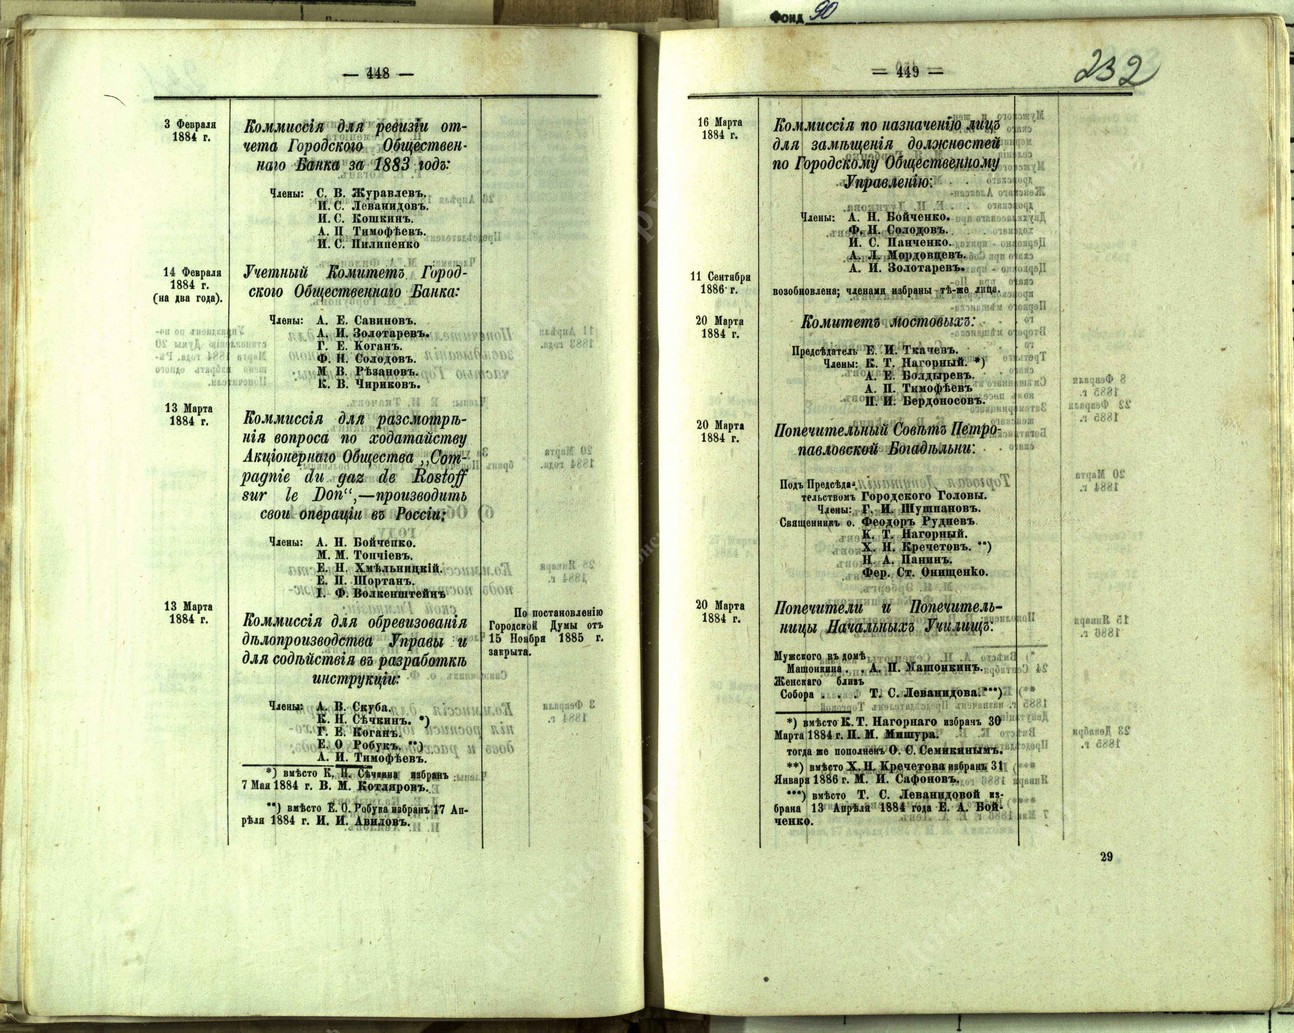 Фонд 90
— 448 —
3 Февраля
1884 г.
Коммиссія для ревизіи от-
чета Городского Обществен-
наго Банка за 1883 годъ:
Члены: С. В. Журавлевъ.
И. С. Леванидовъ.
И. С. Кошкинъ.
А. П Тимофѣевъ.
И. С. Пилипенко
14 Февраля
1884 г.
(на два года).
Учетный Комитетъ Город-
ского Общественнаго Банка:
Члены: А. Е. Савиновъ.
А. И. Золотаревъ.
Г. Е. Коганъ.
Ф. Н. Солодовъ.
М. В. Рѣзановъ.
К. В. Чириковъ.
13 Марта
1884 г.
Коммиссія для разсмотрѣ-
нія вопроса по ходатайству
Акціонернаго Общества „Com-
pagnie du gaz de Rostoff
sur le Don“,—производить
свои операціи въ Россіи;
Члены: А. Н. Бойченко.
М. М. Топчіевъ.
Е. Н. Хмѣльницкій.
Е. П. Шортанъ.
І. Ф. Волкенштейнъ
13 Марта
1884 г.
Коммиссія для обревизованія
дѣлопроизводства Управы и
для содѣйствія въ разработкѣ
инструкціи:
Члены: А. В. Скуба.
К. Н. Сѣчкинъ. *)
Г. Е. Коганъ.
Е. О Робукъ. **)
А. И. Тимофѣевъ.
По постановленію
Городской Думы отъ
15 Ноября 1885 г.
закрыта.
*) вмѣсто К. Н. Сѣчкина избранъ
7 Мая 1884 г. В. М. Котляровъ.
**) вмѣсто Е. О. Робука избранъ 17 Ап-
рѣля 1884 г. И. И. Авиловъ.
— 449 —
232
16 Марта
1884 г.
Коммиссія по назначенію лицъ
для замѣщенія должностей
по Городскому Общественному
Управленію:
Члены: А. Н. Бойченко.
Ф. Н. Солодовъ.
И. С. Панченко.
А. Л. Мордовцевъ.
А. И. Золотаревъ.
11 Сентября
1886 г.
возобновлена; членами избраны тѣ-же лица.
20 Марта
1884 г.
Комитетъ мостовыхъ:
Предсѣдатель Е. И. Ткачевъ.
Члены: К. Т. Нагорный. *)
А. Е. Болдыревъ.
А. П. Тимофѣевъ
П. И. Бердоносовъ.
20 Марта
1884 г.
Попечительный Совѣтъ Петро-
павловской Богадѣльни:
Подъ Предсѣда-
тельствомъ Городского Головы.
Члены: Г. И. Шушпановъ.
Священникъ о. Феодоръ Рудневъ.
К. Т. Нагорный.
Х. Н. Кречетовъ. **)
Н. А. Панинъ.
Фер. Ст. Онищенко.
20 Марта
1884 г.
Попечители и Попечитель-
ницы Начальныхъ Училищъ:
Мужского въ домѣ
Машонкина . А. П. Машонкинъ.
Женскаго близъ
Собора . . . Т. С. Леванидова.***)
*) вмѣсто К. Т. Нагорнаго избранъ 30
Марта 1884 г. П. М. Мишура.
тогда же пополненъ О. С. Семикинымъ.
**) вмѣсто Х. Н. Кречетова избранъ 31
Января 1886 г. М. И. Сафоновъ.
***) вмѣсто Т. С. Леванидовой из-
брана 13 Апрѣля 1884 года Е. А. Бой-
ченко.
29